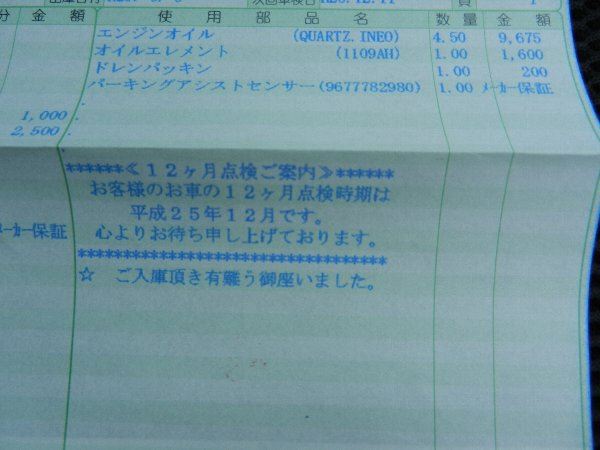 次回車検日
頁 1
分 金額 使用部品名 数量 金額
エンジンオイル (QUARTZ.INEO) 4.50 9,675
オイルエレメント (1109AH) 1.00 1,600
ドレンパッキン 1.00 200
パーキングアシストセンサー(9677782980) 1.00 メーカー保証
1,000
2,500
******≪12ヶ月点検ご案内≫******
お客様のお車の12ヶ月点検時期は
平成25年12月です。
メーカー保証 心よりお待ち申し上げております。
*********************************
☆ ご入庫頂き有難う御座いました。